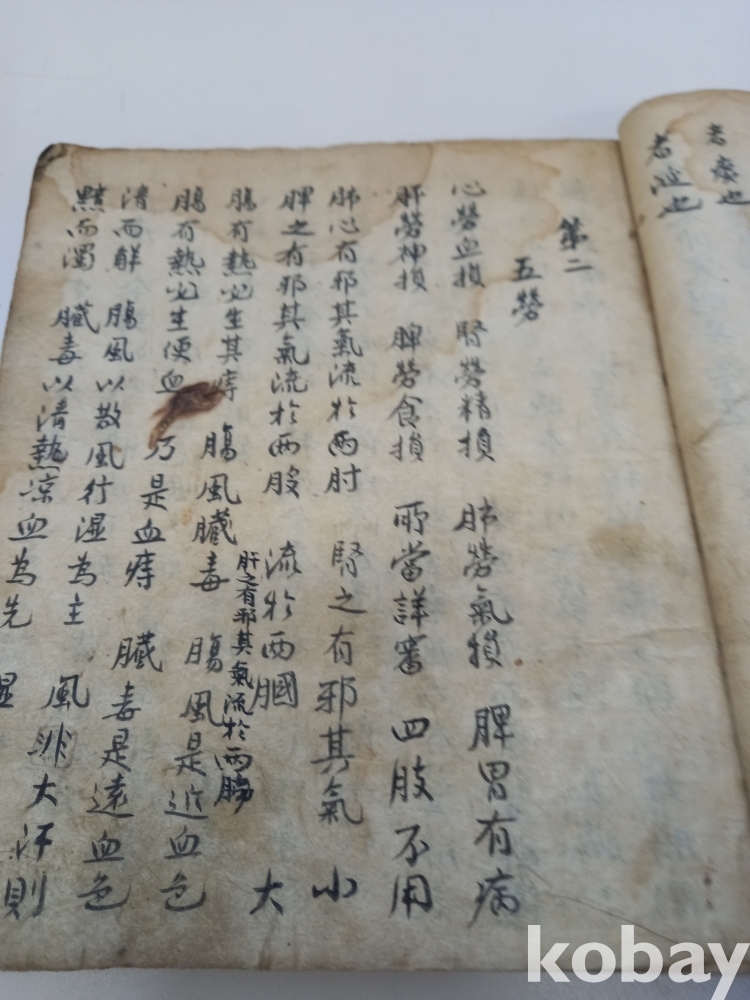 者 也
者 也
第二
五勞
心勞血損 腎勞精損 肺勞氣損 脾胃有病
肝勞神損 脾勞食損 所當詳審 四肢不用
肺心有邪其氣流於兩肘 腎之有邪其氣 小
脾之有邪其氣流於兩股 流於兩膕 大
肝之有邪其氣流於兩
膓有熱必生其痔 膓風臟毒 膓風是近血色
膓有熱必生便血 乃是血痔 臟毒是遠血色
清而鮮 膓風以散風行湿為主 風非大汗則
黯而濁 臟毒以清熱凉血為先 湿
kobay